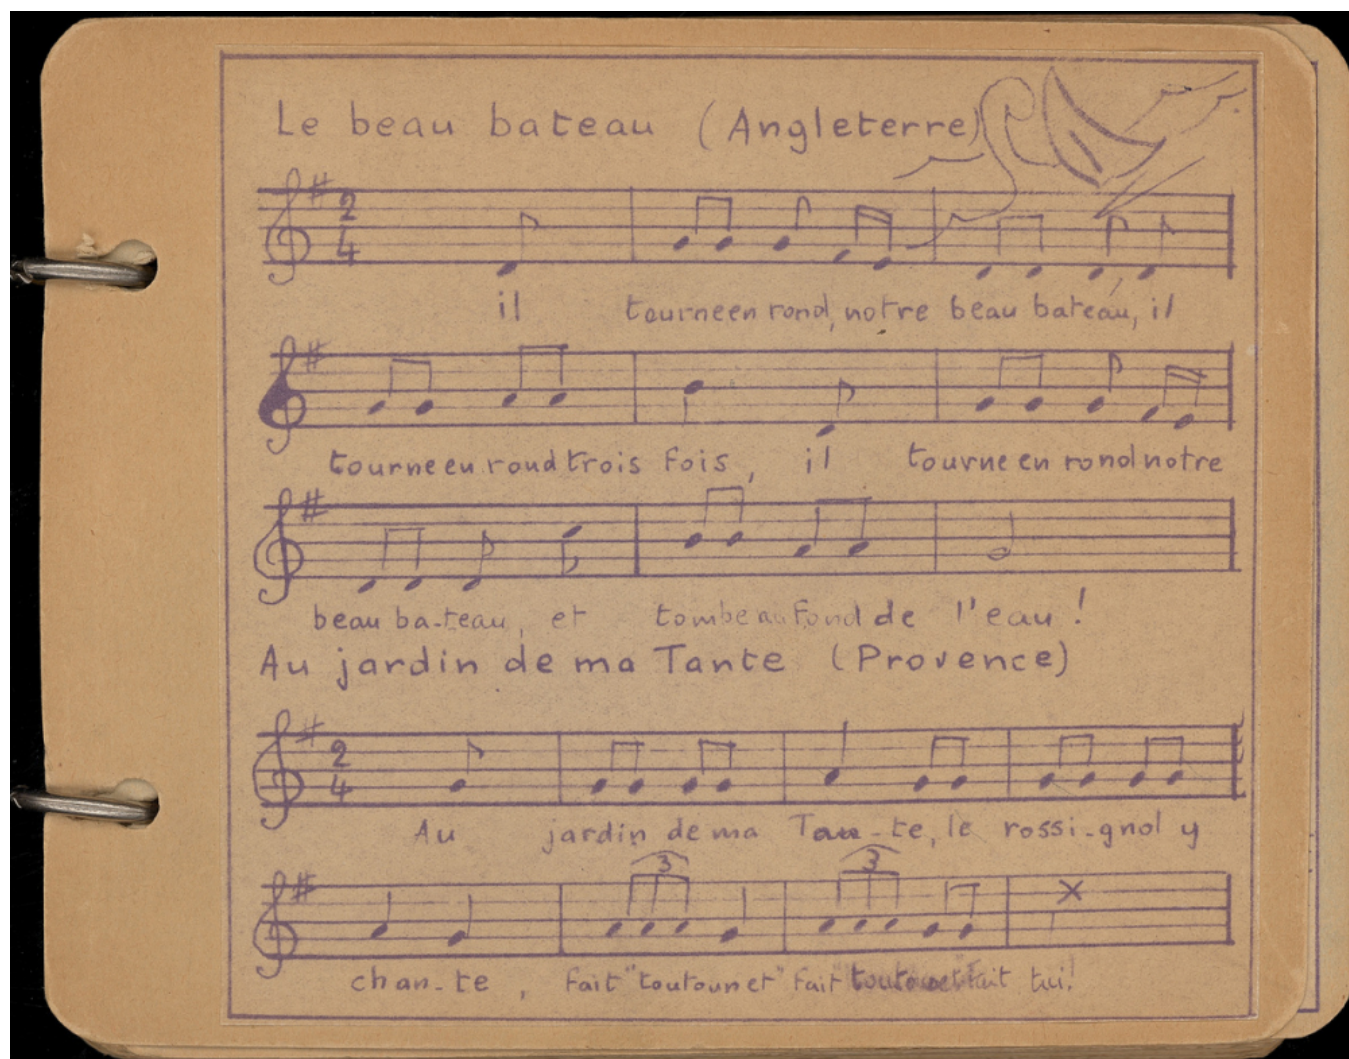 Le beau bateau (Angleterre)
2
4
il tourne en rond, notre beau bateau, il
tourne en rond trois fois, il tourne en rond notre
beau ba-teau, et tombe au fond de l'eau !
Au jardin de ma Tante (Provence)
2
4
Au jardin de ma Tan-te, le rossi-gnol y
3 3
chan-te, fait "toutounet" fait "toutounet" fait tui!